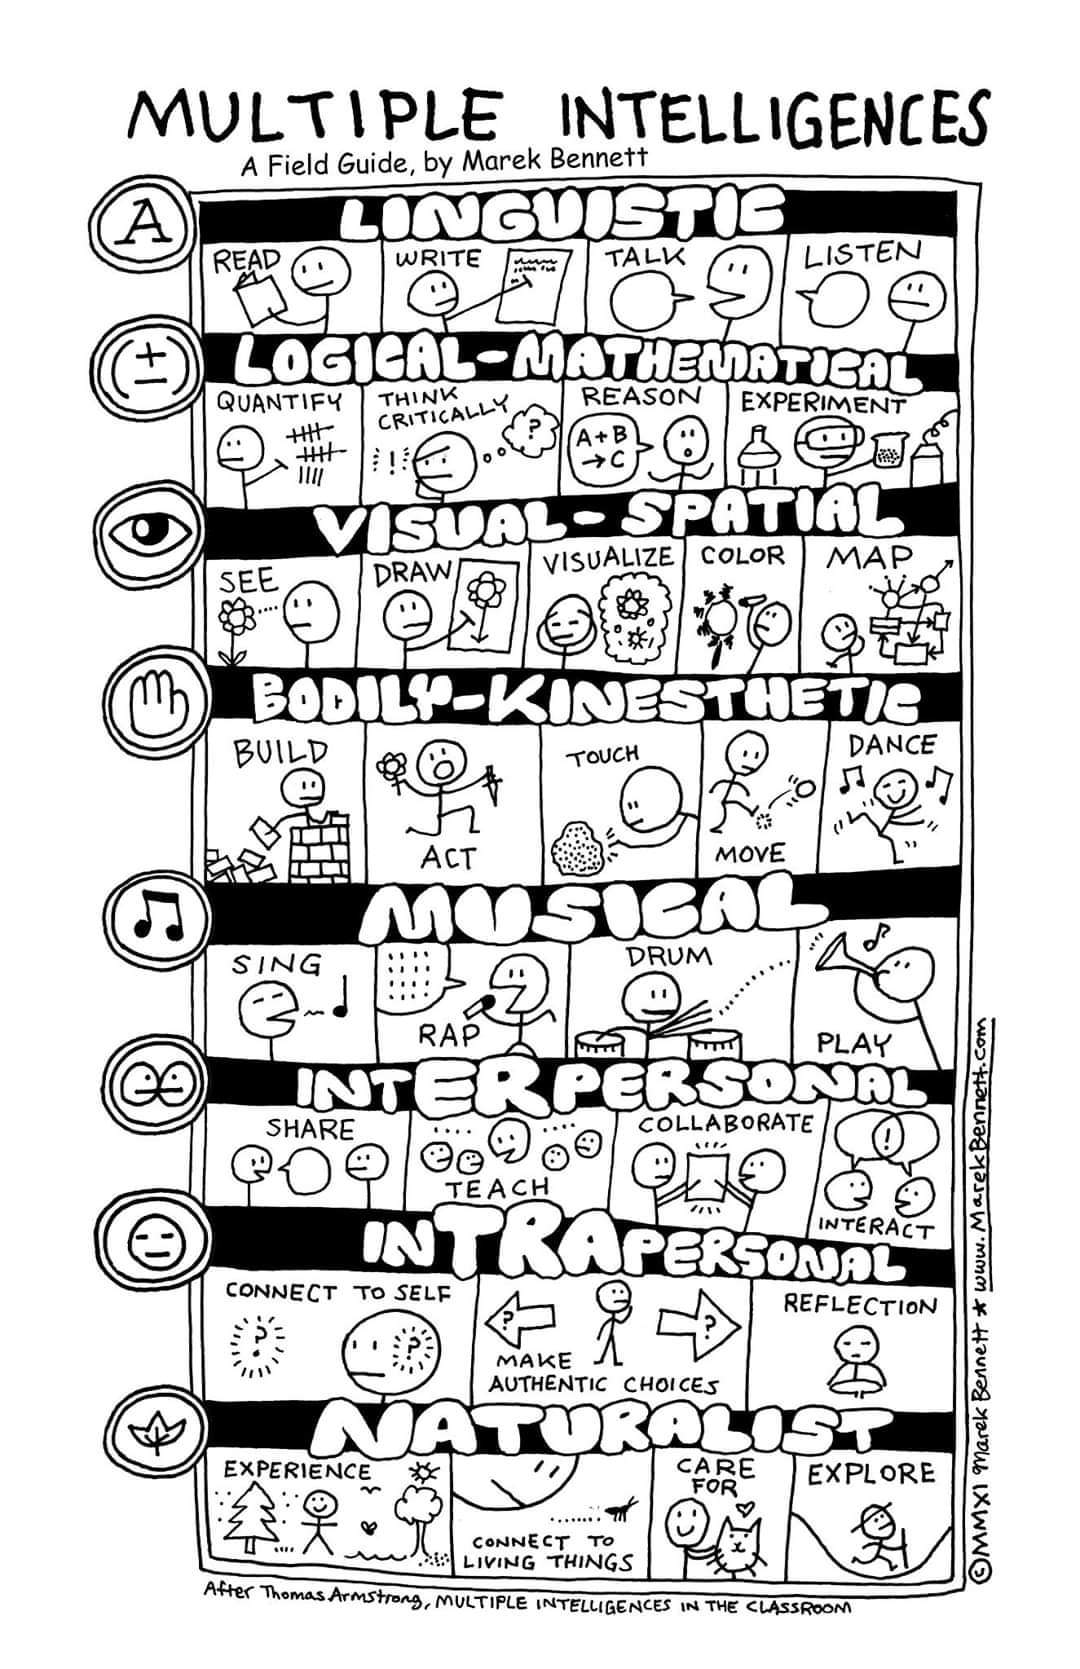 MULTIPLE INTELLIGENCES
A Field Guide, by Marek Bennett
A
LINGUISTIC
READ
WRITE
TALK
LISTEN
+
−
LOGICAL-MATHEMATICAL
QUANTIFY
THINK
CRITICALLY
!
?
REASON
A+B
→C
EXPERIMENT
VISUAL-SPATIAL
SEE
DRAW
VISUALIZE
COLOR
MAP
BODILY-KINESTHETIC
BUILD
ACT
TOUCH
MOVE
DANCE
MUSICAL
SING
RAP
DRUM
PLAY
INTERPERSONAL
SHARE
TEACH
COLLABORATE
!
INTERACT
INTRAPERSONAL
CONNECT TO SELF
?
?
?
?
MAKE
AUTHENTIC CHOICES
REFLECTION
NATURALIST
EXPERIENCE
CONNECT TO
LIVING THINGS
CARE
FOR
EXPLORE
After Thomas Armstrong, MULTIPLE INTELLIGENCES IN THE CLASSROOM
©MMXI Marek Bennett * www.MarekBennett.com